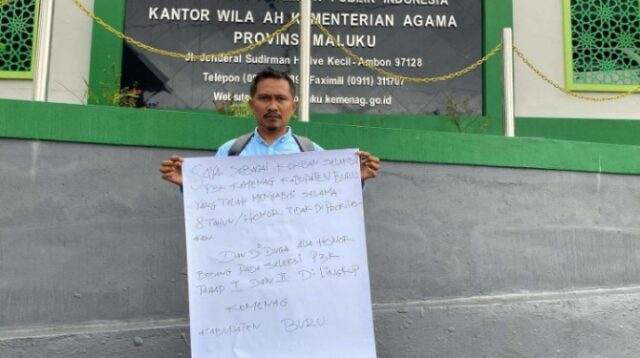 PUBLIK INDONESIA
KANTOR WILA AH KEMENTERIAN AGAMA
PROVINSI MALUKU
Jl. Jenderal Sudirman Hative Kecil - Ambon 97128
Telepon (0911) Faximili (0911) 311707
Web site maluku kemenag.go.id
SAYA SEBAGAI KORBAN SELEKSI
P3K KEMENAG KABUPATEN BURU
YANG TELAH MENGABDI SELAMA
8 TAHUN/HONOR TIDAK DI
KAN
DAN DI DUGA ADA HONOR
BODONG PADA SELEKSI P3K
TAHAP I DAN II DI LINGKUP
KEMENAG
KABUPATEN BURU